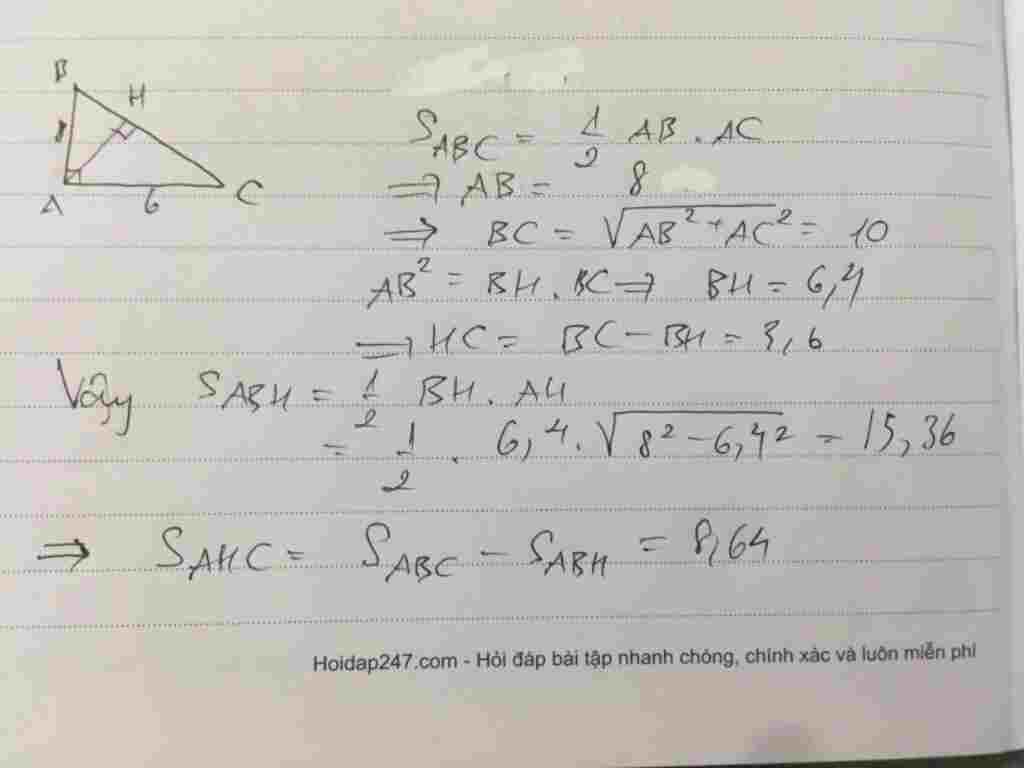 B
H
A
6
C
S_ABC = 1/2 AB . AC
⇒ AB = 8
⇒ BC = √(AB² + AC²) = 10
AB² = BH . BC ⇒ BH = 6,4
⇒ HC = BC - BH = 3,6
Vậy S_ABH = 1/2 BH . AH
= 1/2 . 6,4 . √(8² - 6,4²) = 15,36
⇒ S_AHC = S_ABC - S_ABH = 8,64
Hoidap247.com - Hỏi đáp bài tập nhanh chóng, chính xác và luôn miễn phí